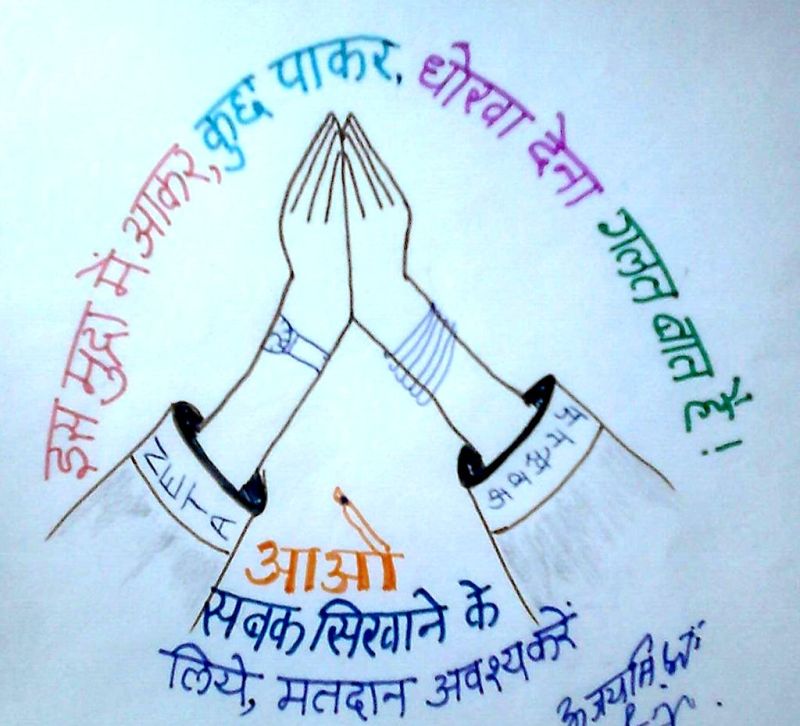 इस मुद्रा में आकर, कुछ पाकर, धोखा देना गलत बात हैं!
NETA
आओ
सबक सिखाने के
लिये, मतदान अवश्य करें